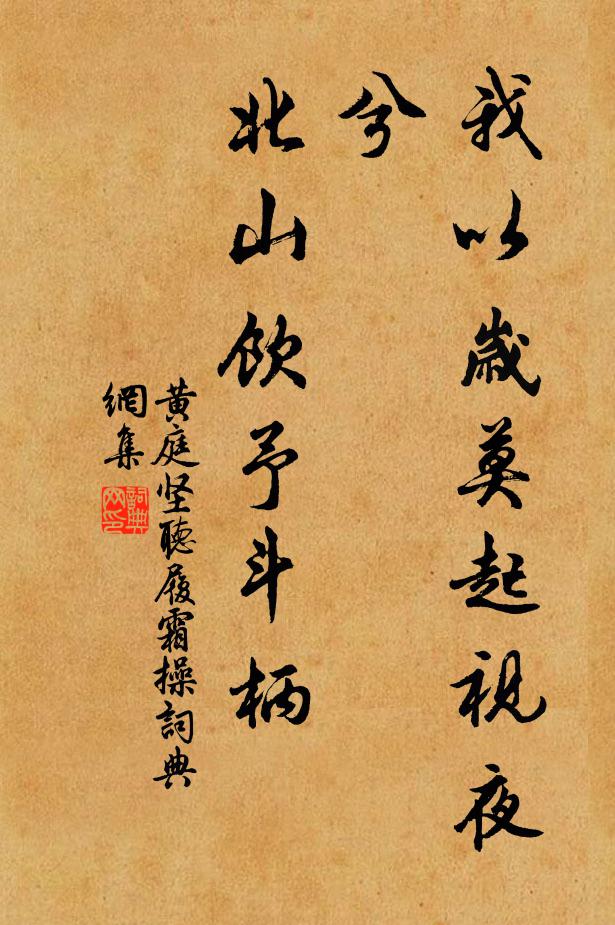 我以歲莫起視夜
兮
北山飲予斗柄
黄庭坚聽履霜操詞典
網集
詞典
网印